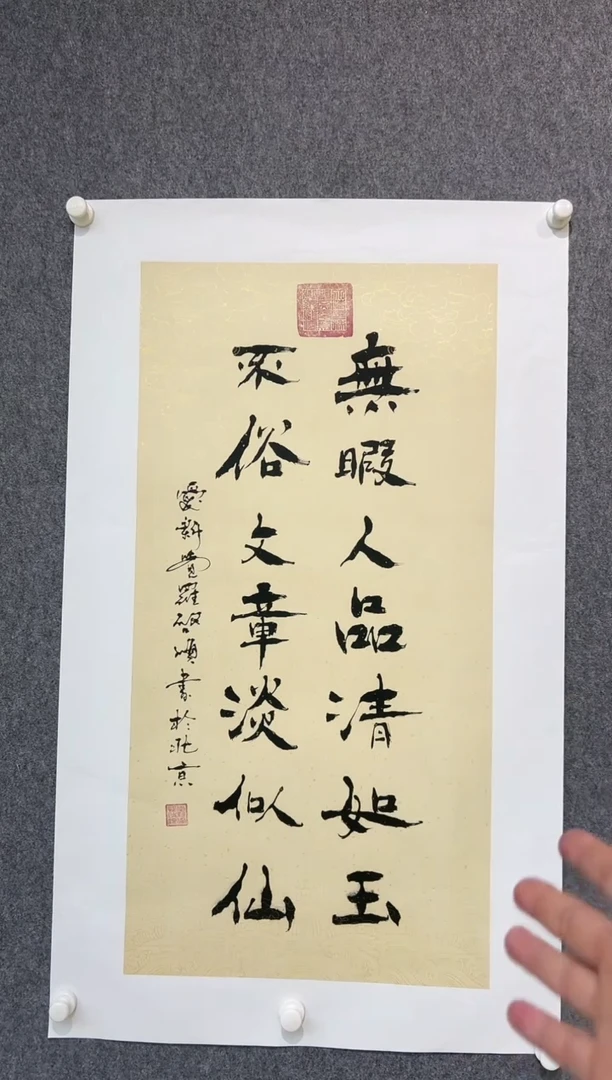 無暇人品清如玉
不俗文章淡似仙
愛新覺羅啟順書於北京